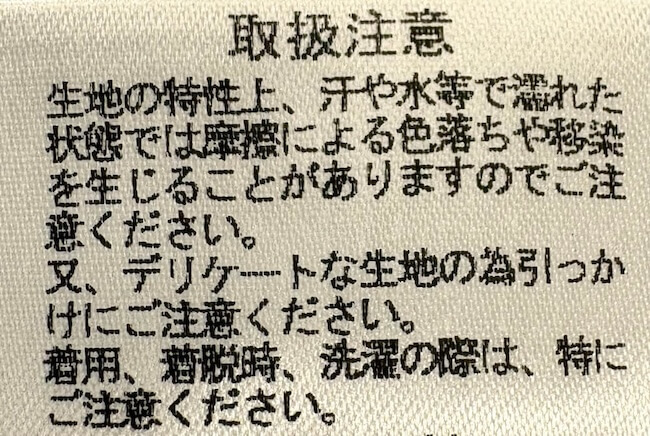 取扱注意
生地の特性上、汗や水等で濡れた
状態では摩擦による色落ちや移染
を生じることがありますのでご注
意ください。
又、デリケートな生地の為引っか
けにご注意ください。
着用、着脱時、洗濯の際は、特に
ご注意ください。